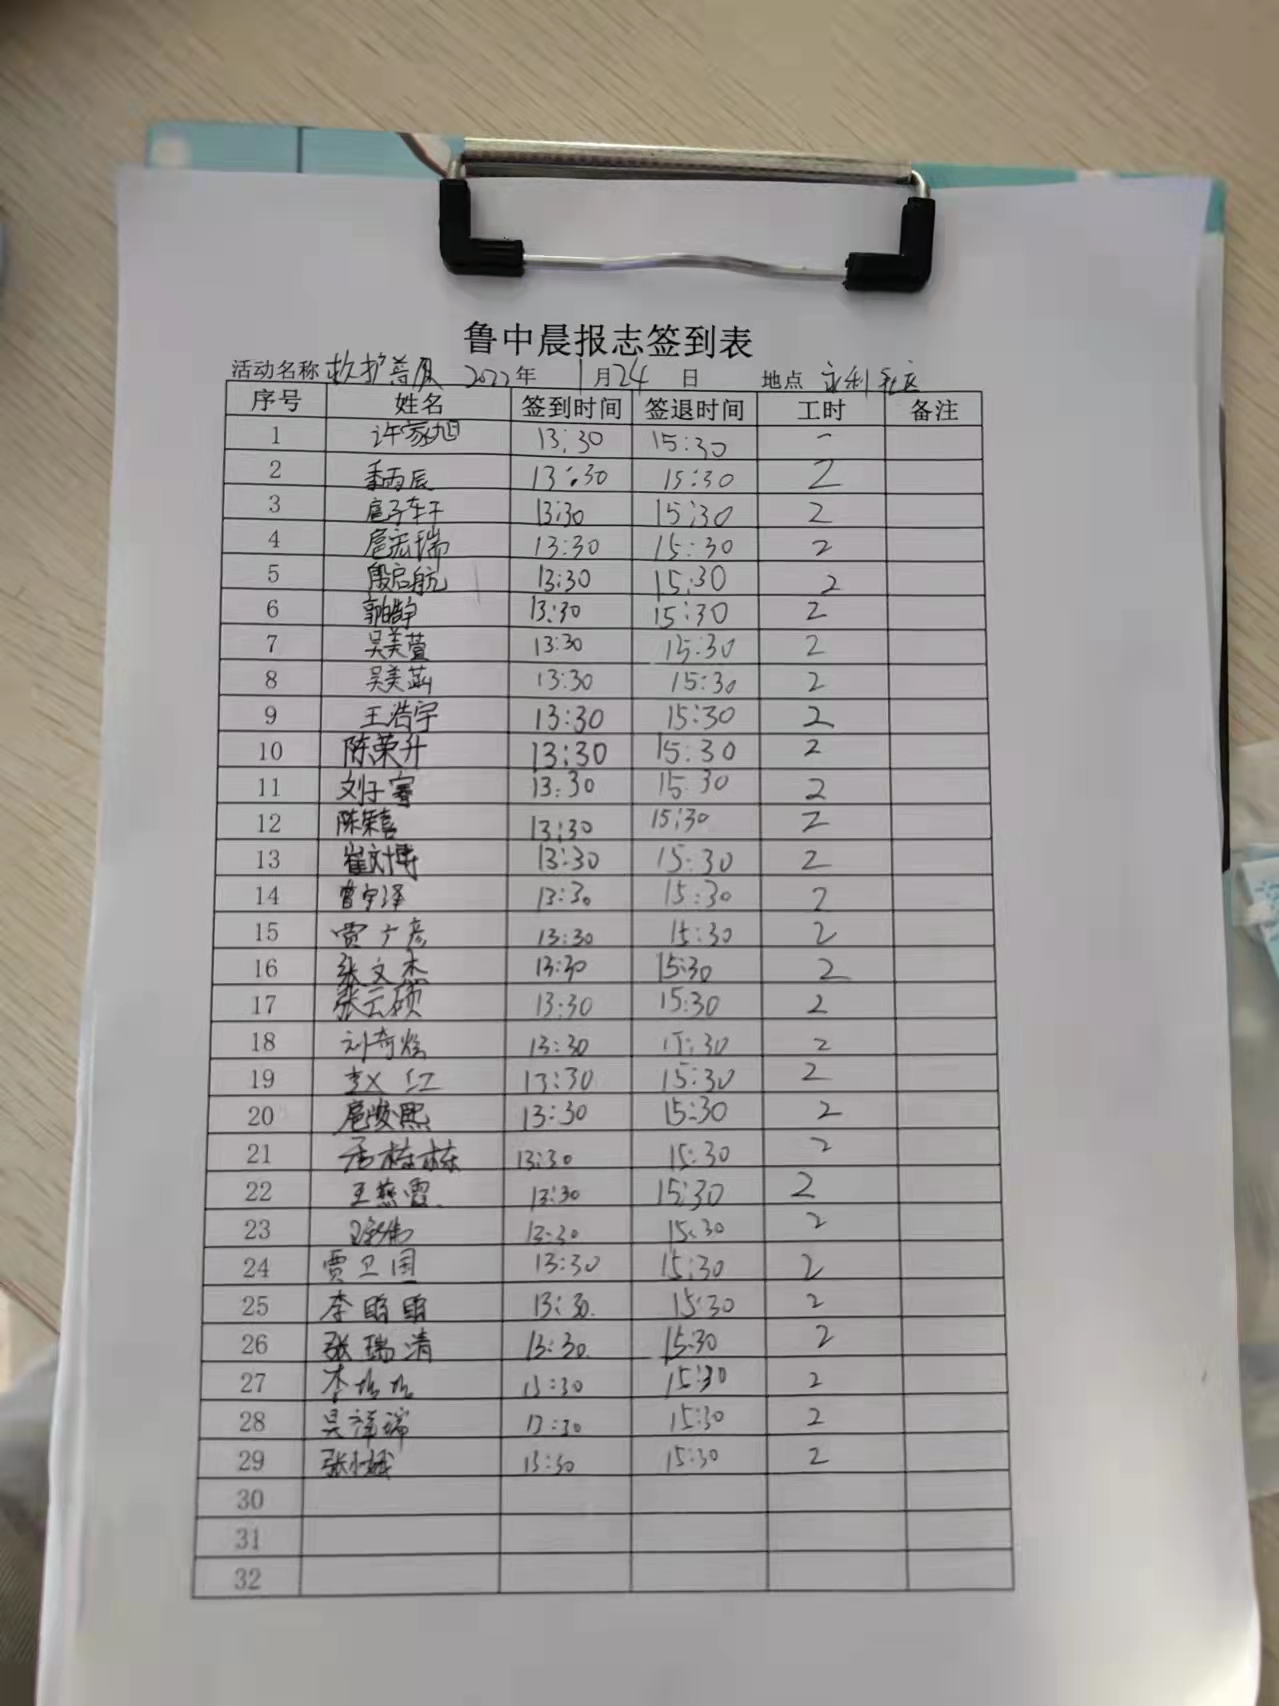 鲁中晨报志签到表
活动名称 救护普及 2022年 1月24日 地点 永利社区
序号 姓名 签到时间 签退时间 工时 备注
1 许家旭 13:30 15:30
2 丙辰 13:30 15:30 2
3 扈子轩 13:30 15:30 2
4 扈宏瑞 13:30 15:30 2
5 殷启航 13:30 15:30 2
6 郭皓宇 13:30 15:30 2
7 吴美萱 13:30 15:30 2
8 吴美 13:30 15:30 2
9 王浩宇 13:30 15:30 2
10 陈荣升 13:30 15:30 2
11 刘子睿 13:30 15:30 2
12 陈荣喜 13:30 15:30 2
13 崔文博 13:30 15:30 2
14 曹宇泽 13:30 15:30 2
15 贾广彦 13:30 15:30 2
16 张文杰 13:30 15:30 2
17 张云硕 13:30 15:30 2
18 刘奇 13:30 15:30 2
19 红 13:30 15:30 2
20 扈峻熙 13:30 15:30 2
21 栋栋 13:30 15:30 2
22 王燕霞 13:30 15:30 2
23 13:30 15:30 2
24 贾卫国 13:30 15:30 2
25 李 13:30 15:30 2
26 张瑞清 13:30 15:30 2
27 李 13:30 15:30 2
28 吴瑞 13:30 15:30 2
29 张 13:30 15:30 2
30
31
32